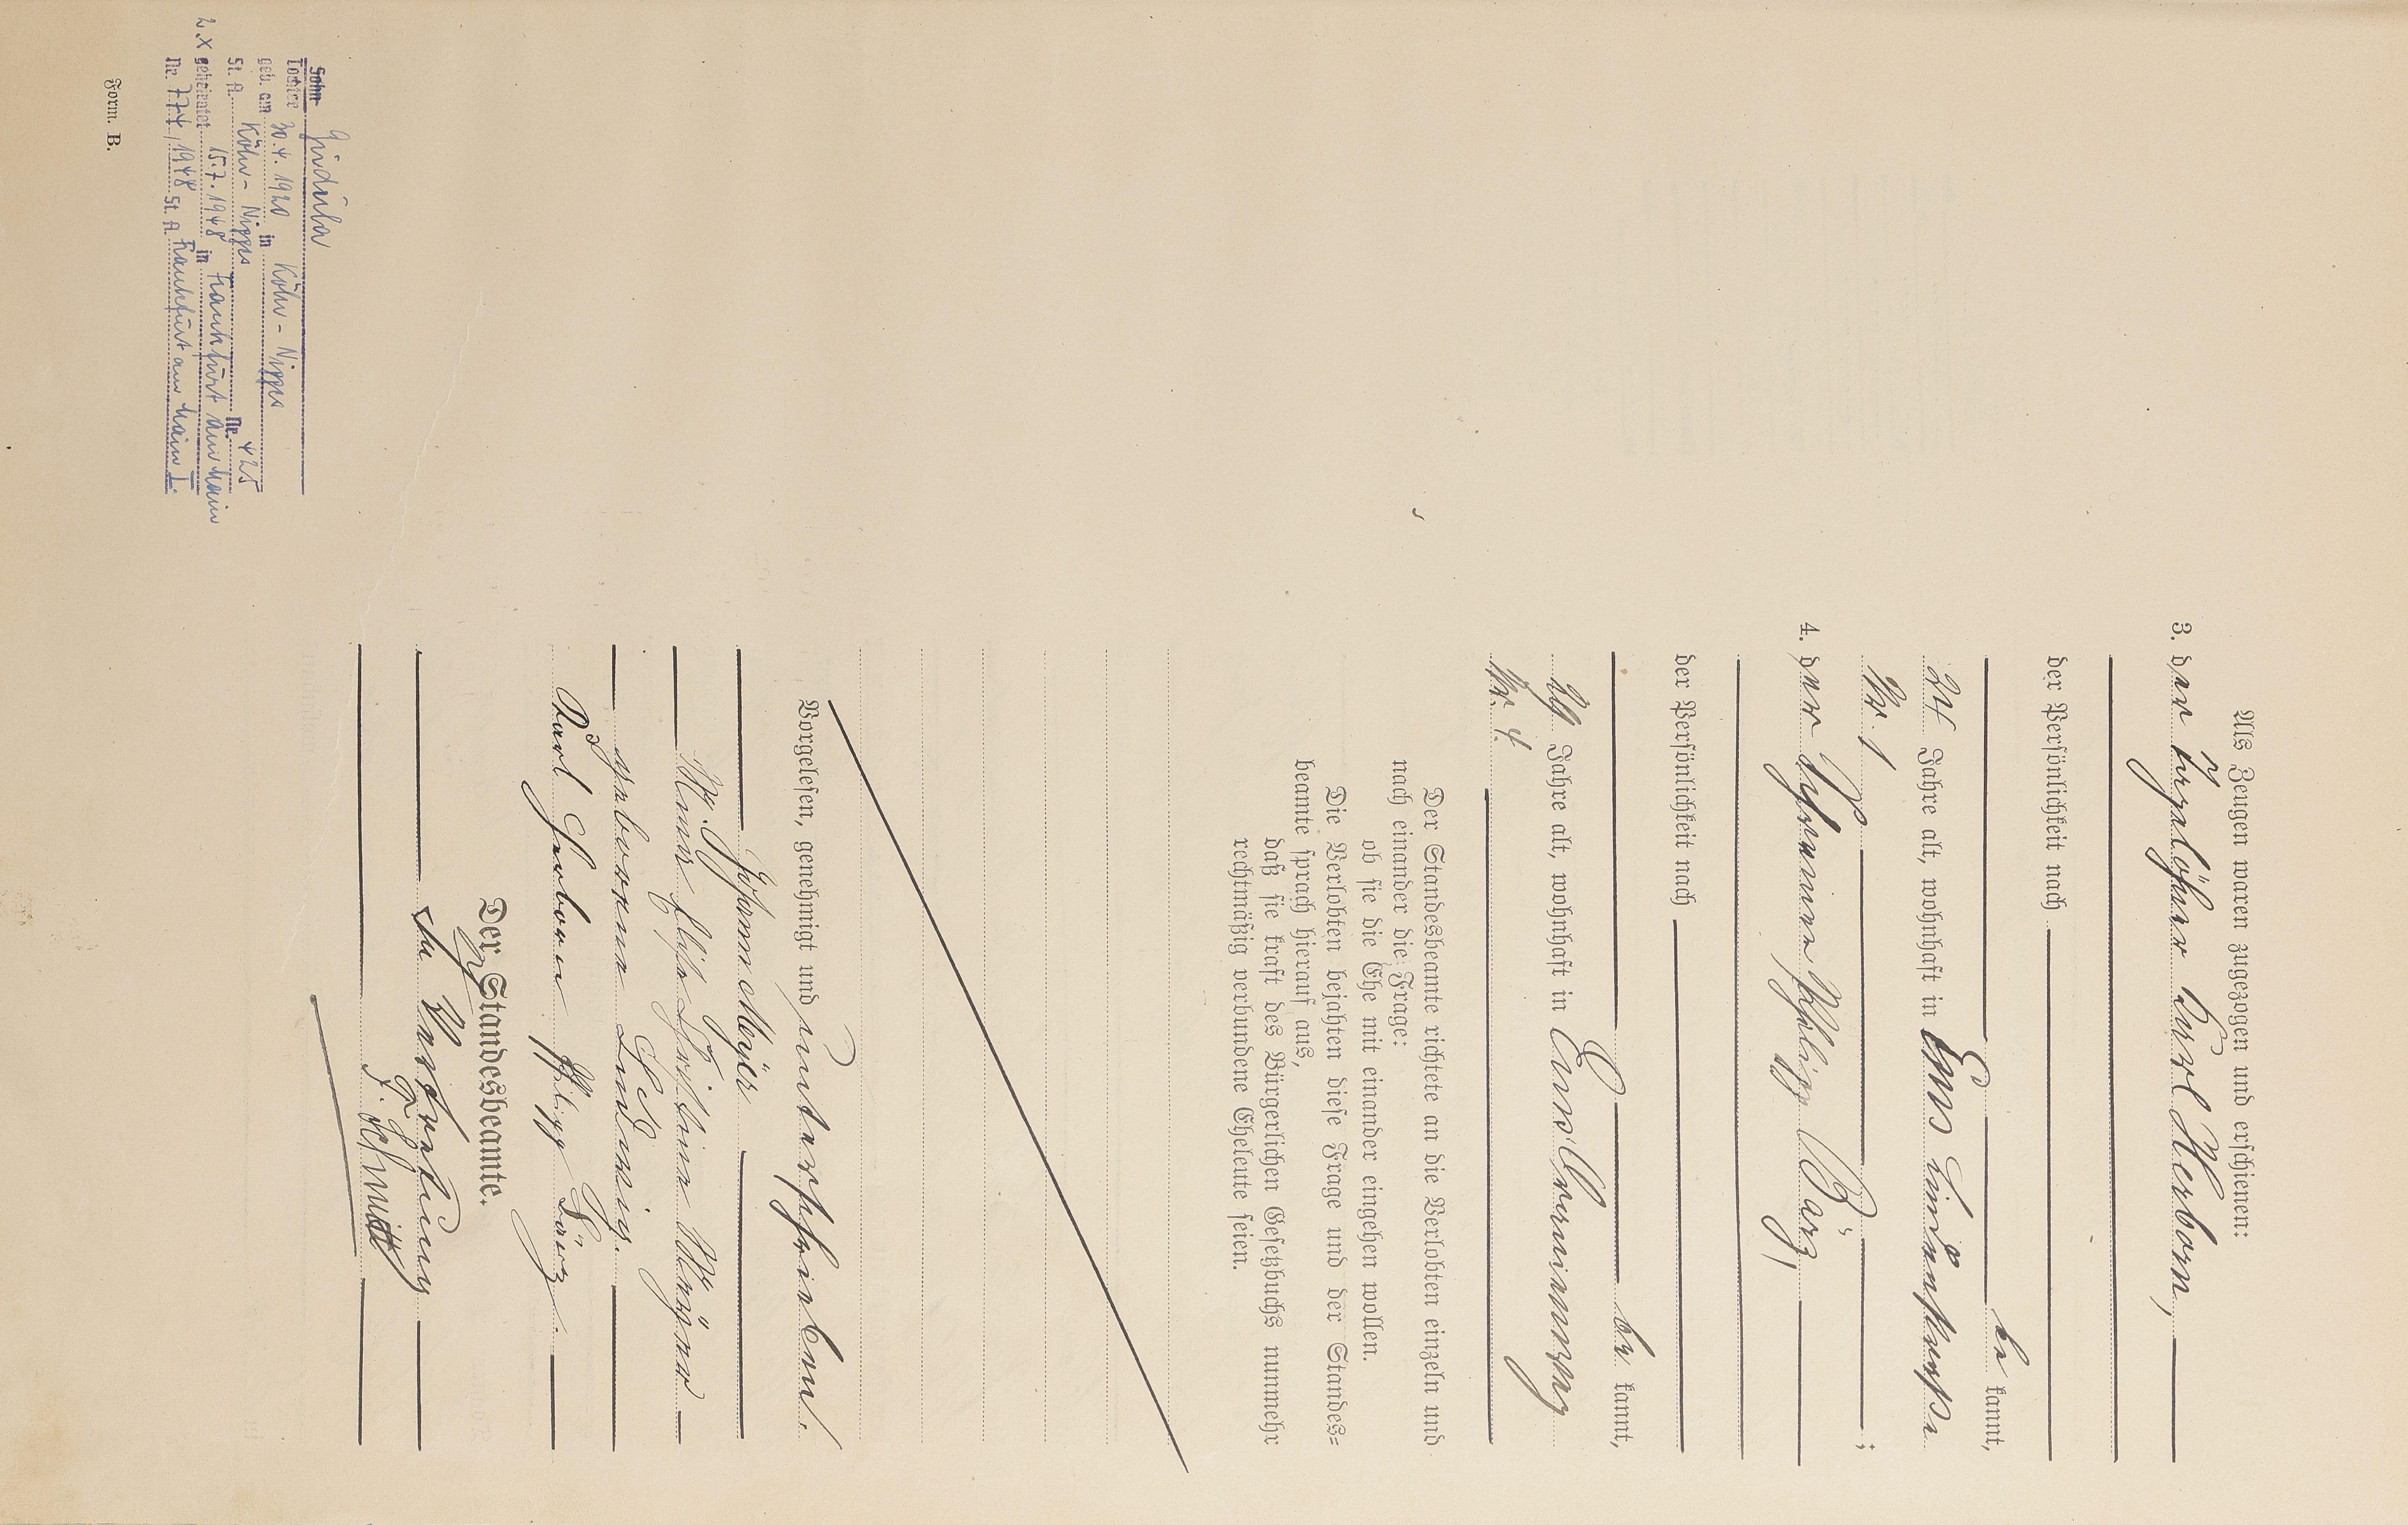 Als Zeugen waren zugezogen und erschienen:
3. der Karl Herborn,
der Persönlichkeit nach
be kannt,
24 Jahre alt, wohnhaft in Ems Lindenstraße
Nr. 1 ;
4. der Schreiner Philipp Bärz,
der Persönlichkeit nach
be kannt,
Jahre alt, wohnhaft in Ems
Nr. 4.
Der Standesbeamte richtete an die Verlobten einzeln und
nach einander die Frage:
ob sie die Ehe mit einander eingehen wollen.
Die Verlobten bejahten diese Frage und der Standes=
beamte sprach hierauf aus,
daß sie kraft des Bürgerlichen Gesetzbuchs nunmehr
rechtmäßig verbundene Eheleute seien.
Vorgelesen, genehmigt und unterschrieben.
Johann Meyer
Anna Elise Christine Meyer
geborene Ludwig.
Karl Herborn Philipp Bärz.
Der Standesbeamte.
In Vertretung
F. Schmitt
Sohn
Tochter Gudula
geb. am 30.4.1920 in Köln-Nippes
St. A. Köln-Nippes Nr. 425
2.X geheiratet 15.7.1948 in Frankfurt am Main
Nr. 774/1948 St. A. Frankfurt am Main I.
Form. B.